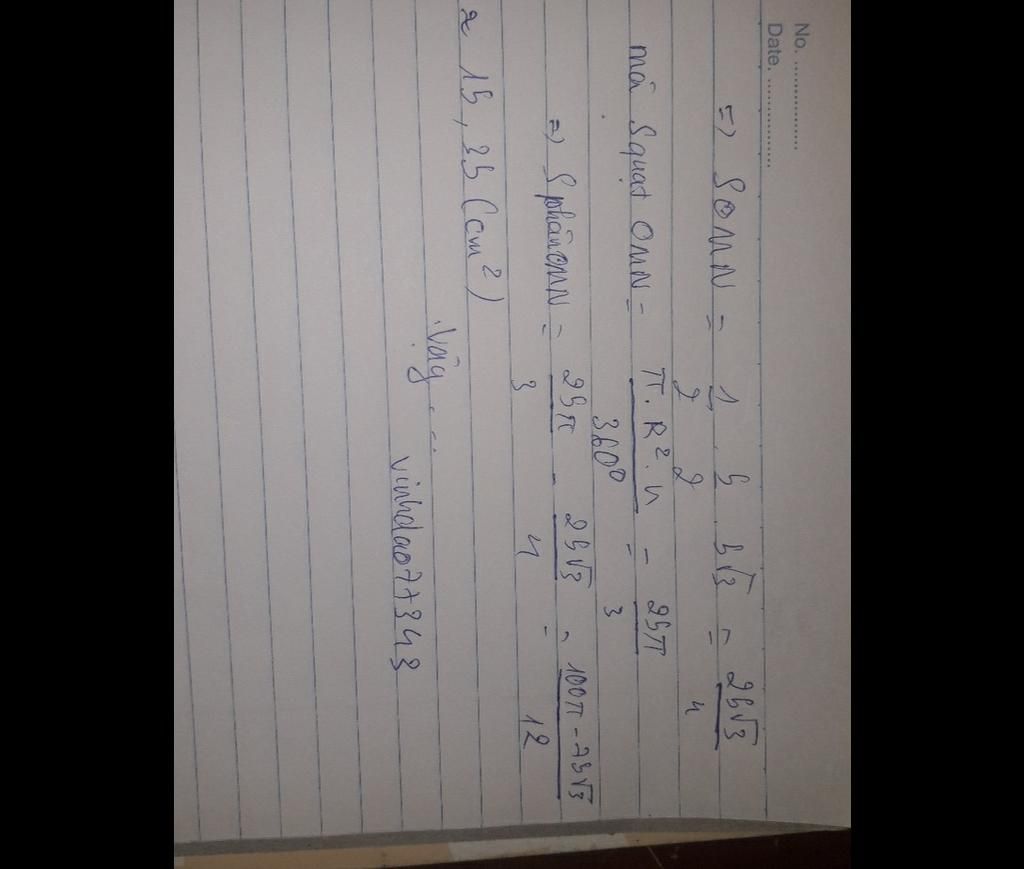 No. ................
Date. ................
=> SOMN = 1/2 . 5/2 . 5√3 = 25√3/4
mà Squạt OMN = π.R².n/360° = 25π/3
=> S phần OMN = 25π/3 - 25√3/4 = 100π-75√3/12
≈ 15,35 (cm²)
Vậy ...
vinhdao7+343